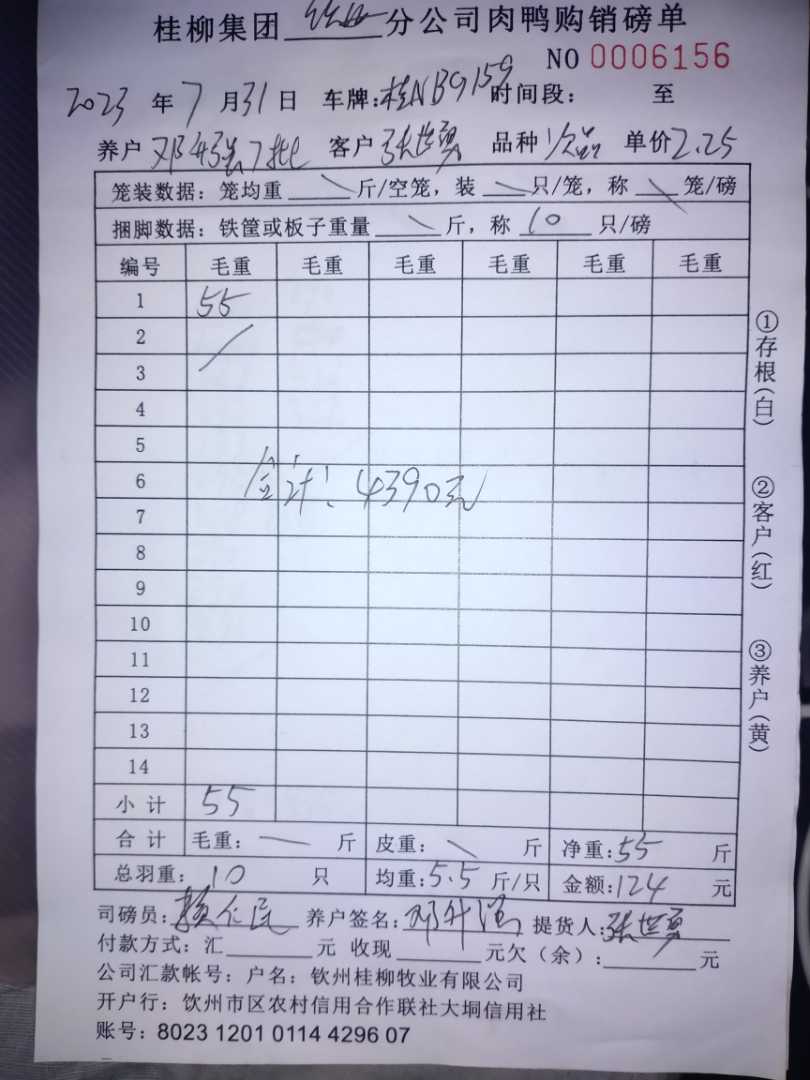 桂柳集团 钦州 分公司肉鸭购销磅单
NO 0006156
2023 年 7 月 31 日 车牌: 桂NB9159 时间段: 至
养户 邓 7批 客户 张世勇 品种 次品 单价 2.25
笼装数据: 笼均重 斤/空笼, 装 只/笼, 称 笼/磅
捆脚数据: 铁筐或板子重量 斤, 称 10 只/磅
编号 毛重 毛重 毛重 毛重 毛重 毛重
1 55
2
3
4
5
6
合计: 4390元
7
8
9
10
11
12
13
14
小 计 55
合 计 毛重: 斤 皮重: 斤 净重: 55 斤
总羽重: 10 只 均重: 5.5 斤/只 金额: 124 元
司磅员: 养户签名: 提货人: 张世勇
付款方式: 汇 元 收现 元欠(余): 元
公司汇款帐号: 户名: 钦州桂柳牧业有限公司
开户行: 饮州市区农村信用合作联社大垌信用社
账号: 8023 1201 0114 4296 07
①存根(白)
②客户(红)
③养户(黄)